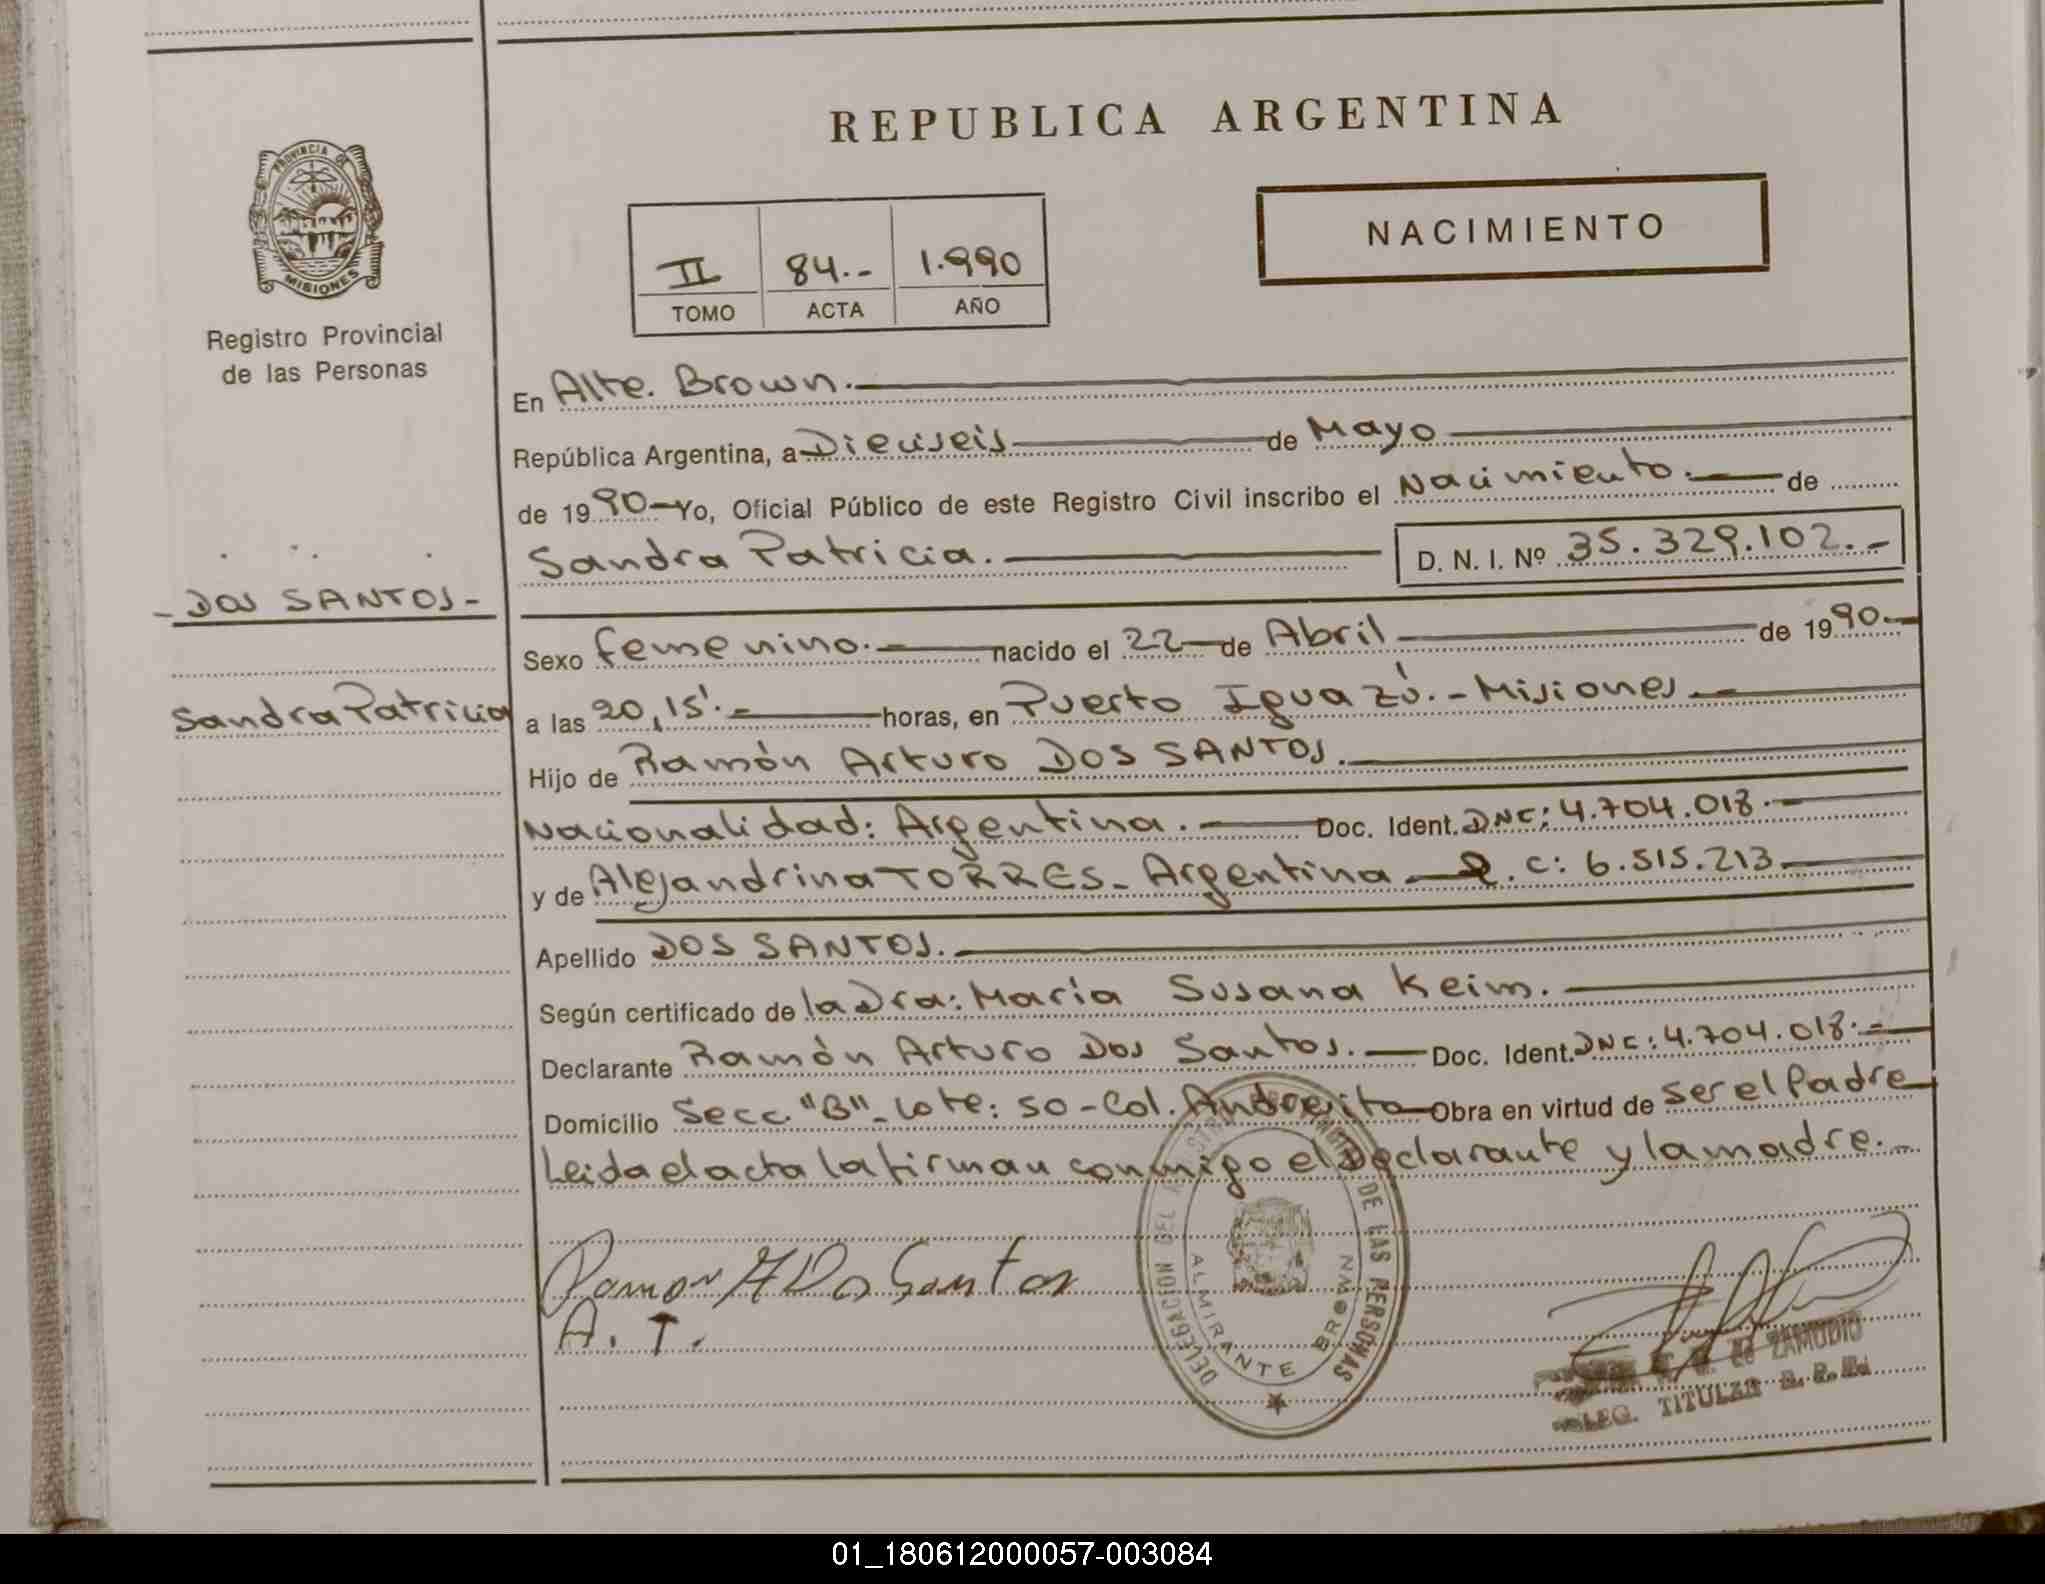 REPUBLICA ARGENTINA
PROVINCIA DE
MISIONES
Registro Provincial
de las Personas
II 84.- 1.990
TOMO ACTA AÑO
NACIMIENTO
En Alte. Brown.
República Argentina, a Dieciseis de Mayo
de 19 90 Yo, Oficial Público de este Registro Civil inscribo el Nacimiento. de
Sandra Patricia. D. N. I. Nº 35.329.102.-
- DOS SANTOS -
Sandra Patricia
Sexo femenino.- nacido el 22 de Abril de 19 90.-
a las 20,15'.- horas, en Puerto Iguazú.- Misiones
Hijo de Ramón Arturo DOS SANTOS.
Nacionalidad: Argentina. Doc. Ident. DNC: 4.704.018.-
y de Alejandrina TORRES- Argentina- C: 6.515.213
Apellido DOS SANTOS.
Según certificado de la Dra: María Susana Keim.
Declarante Ramón Arturo Dos Santos.- Doc. Ident. DNC: 4.704.018.-
Domicilio Secc. "B"- Lote: 50-Col. Andresito Obra en virtud de ser el Padre
Leida el acta la firman conmigo el Declarante y la madre.-
Ramon A Do Santos
A. T.
DELEGACION DEL DE LAS PERSONAS
ALMIRANTE BROWN
de ZAMUDIO
LEG. TITULAR
01_180612000057-003084